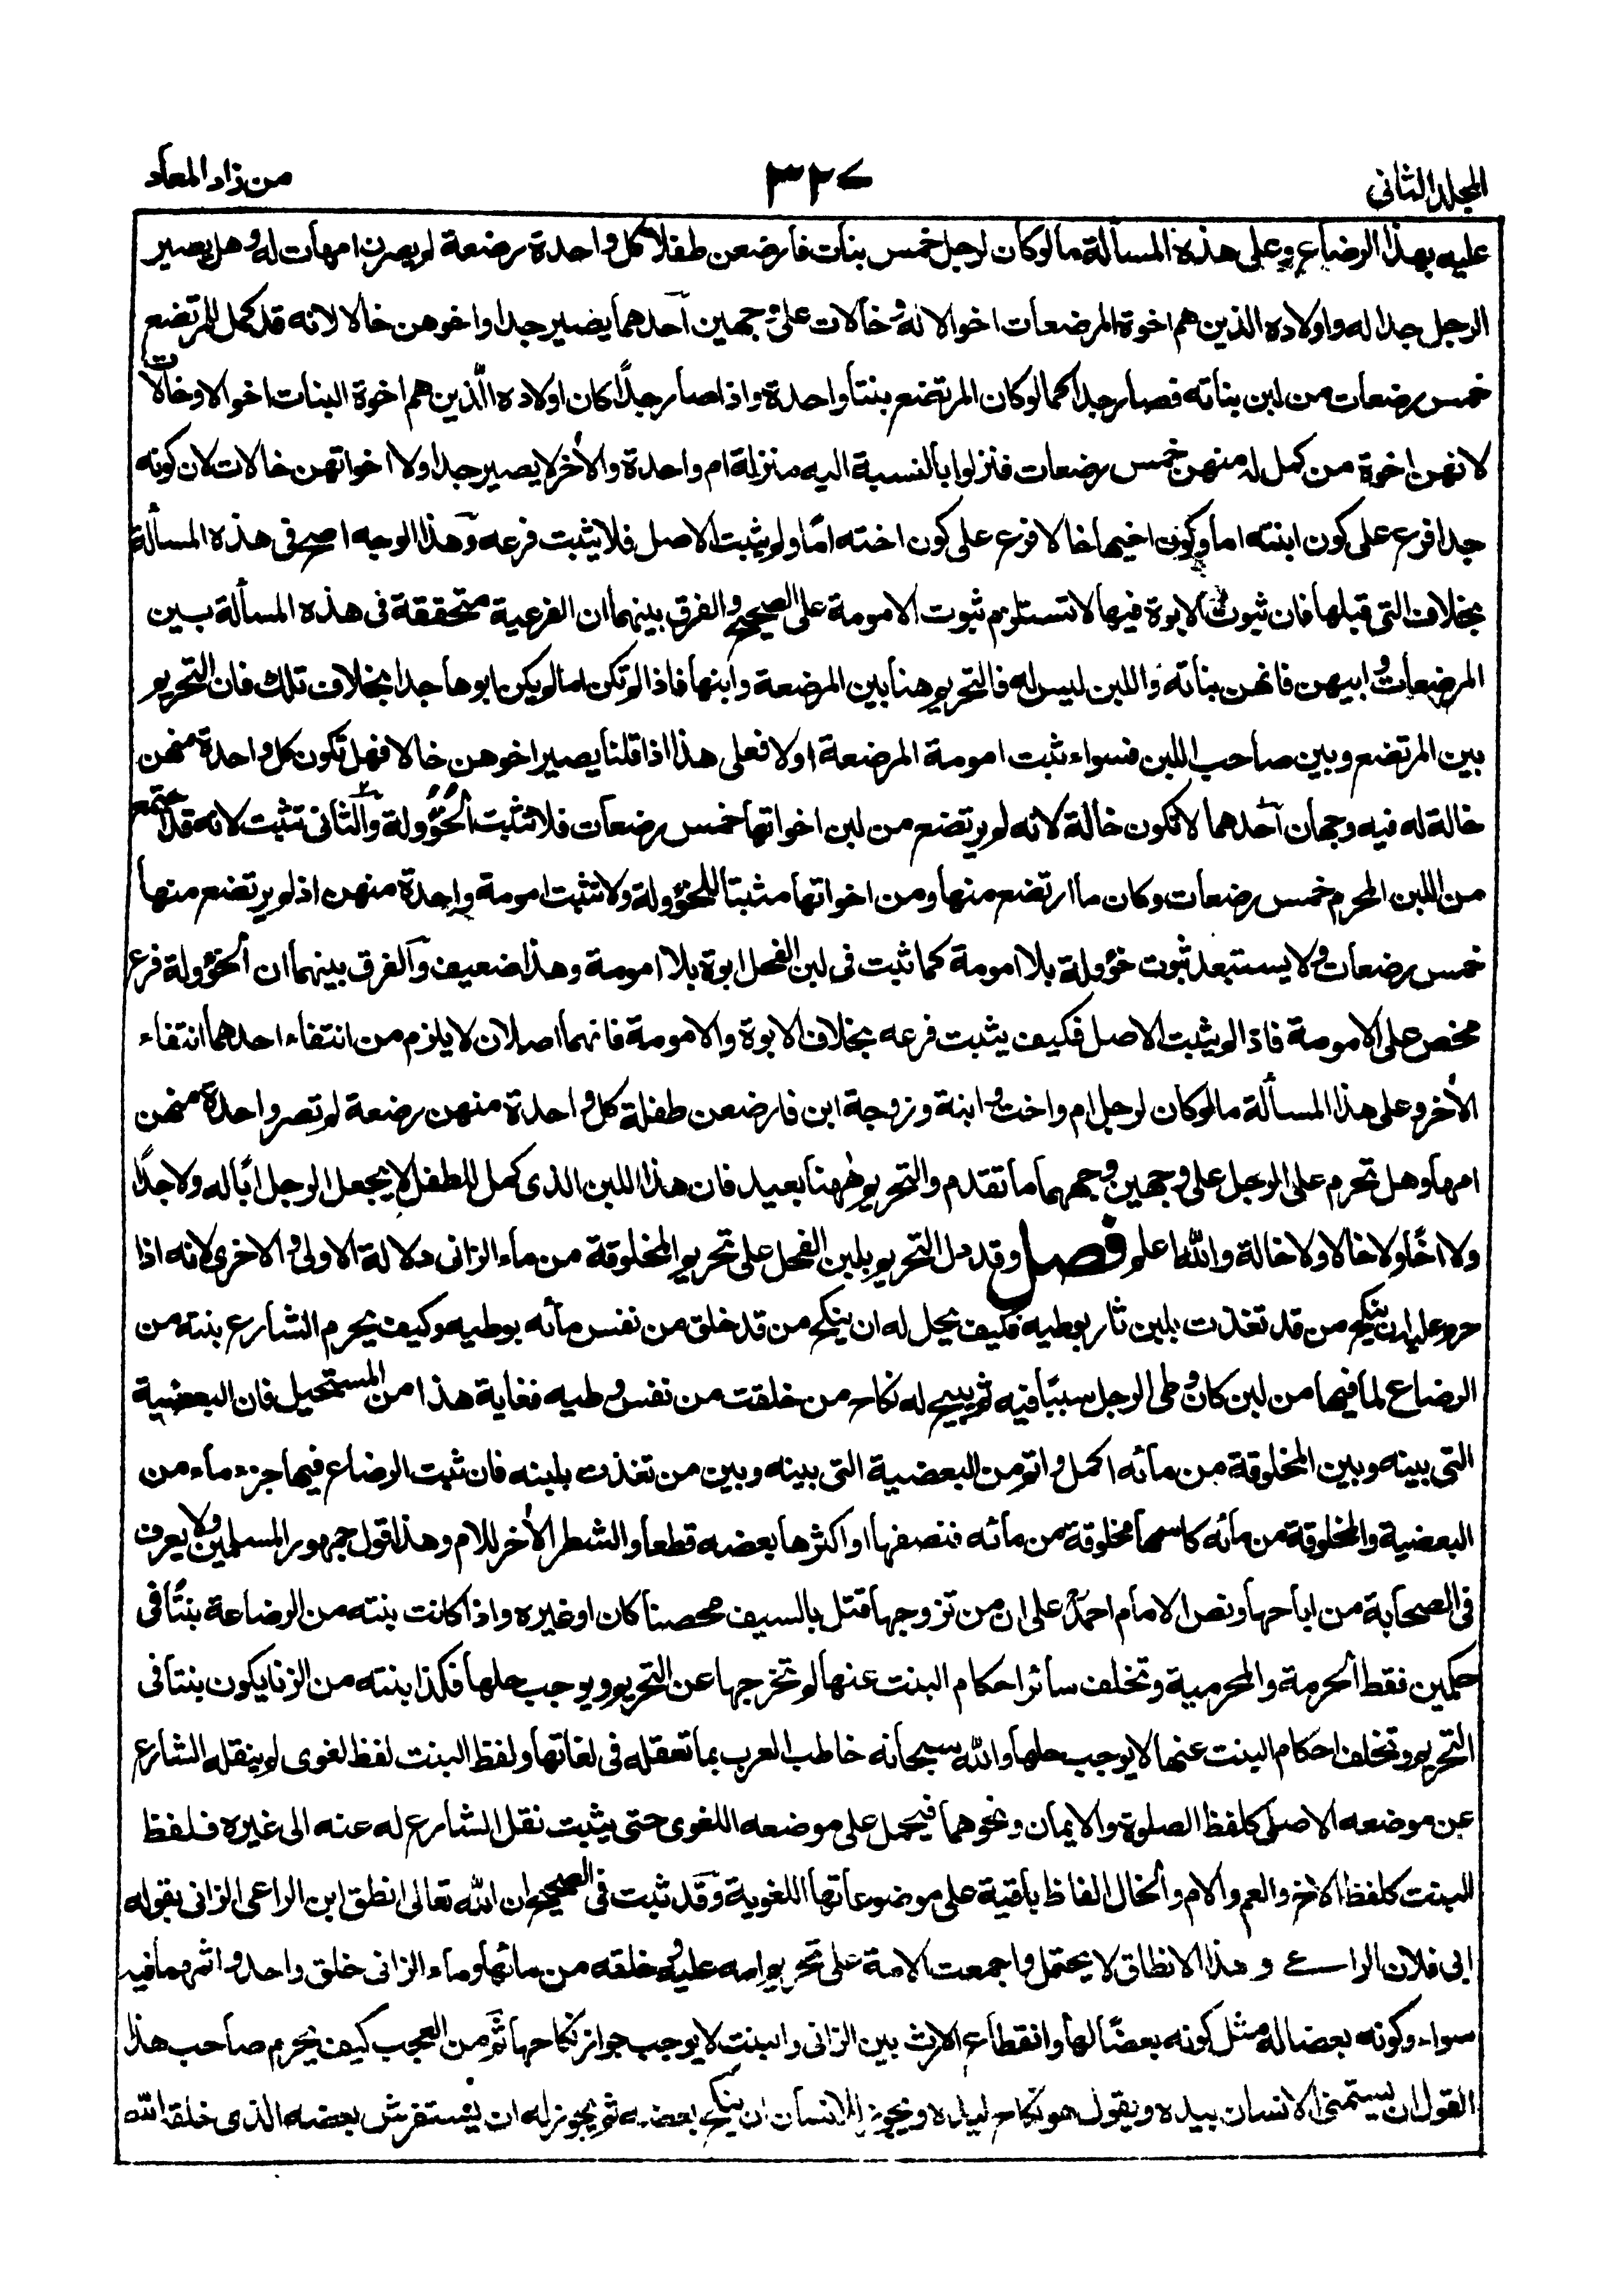 المجلد الثانى
٣٢٧
من زاد المعاد
عليه بهذا الرضاع وعلى هذه المسألة ما لو كان لرجل خمس بنات فارضعن طفلا كل واحدة رضعة لم يصرن امهات له وهل يصير
الرجل جدا له واولاده الذين هم اخوة المرضعات اخوالا له وخالات على وجهين احدهما يصير جدا واخوهن خالا لانه قد كمل للمرتضع
خمس رضعات من لبن بناته فصار جدا كما لو كان المرتضع بنتا واحدة واذا صار جدًا كان اولاده الّذين هم اخوة البنات اخوالا وخالات
لانهن اخوة من كمل له منهن خمس رضعات فنزلوا بالنسبة اليه منزلة ام واحدة والأخر لا يصير جدا ولا اخواتهن خالات لان كونه
جدا فرع على كون ابنته اما وكون اخيها خالا فرع على كون اخته امّا ولم يثبت الاصل فلا يثبت فرعه وهذا الوجه اصح فى هذه المسألة
بخلاف التى قبلها فان ثبوت الابوة فيها لا تستلزم ثبوت الامومة على الصحيح والفرق بينهما ان الفرعية متحققة فى هذه المسألة بين
المرضعات وابيهن فانهن بناته واللبن ليس له فالتحريم هنا بين المرضعة وابنها فاذا لم تكن اما لم يكن ابوها جدا بخلاف تلك فان التحريم
بين المرتضع وبين صاحب اللبن فسواء ثبت امومة المرضعة اولا فعلى هذا اذا قلنا يصير اخوهن خالا فهل تكون كل واحدة منهن
خالة له فيه وجهان احدهما لا تكون خالة لانه لم يرتضع من لبن اخواتها خمس رضعات فلا تثبت الخُؤُولة والثانى تثبت لانه قد اجتمع
من اللبن المحرم خمس رضعات وكان ما ارتضع منها ومن اخواتها مثبتا للخؤولة ولا تثبت امومة واحدة منهن اذ لم يرتضع منها
خمس رضعات ولا يستبعد ثبوت خؤولة بلا امومة كما ثبت فى لبن الفحل ابوة بلا امومة وهذا ضعيف والفرق بينهما ان الخؤولة فرع
محض على الامومة فاذا لم يثبت الاصل فكيف يثبت فرعه بخلاف الابوة والامومة فانهما اصلان لا يلزم من انتفاء احدهما انتفاء
الأخر وعلى هذا المسألة ما لو كان لرجل ام واخت وابنة وزوجة ابن فارضعن طفلة كل واحدة منهن رضعة لم تصر واحدة منهن
امها وهل تحرم على الرجل على وجهين وجههما ما تقدم والتحريم ههنا بعيد فان هذا اللبن الذى كمل للطفل لا يجعل الرجل ابًا له ولا جدًا
ولا اخًا ولا خالا ولا خالة والله اعلم فصل وقد دل التحريم بلبن الفحل على تحريم المخلوقة من ماء الزانى دلالة الاولى والاخرى لانه اذا
حرم عليه ان ينكح من قد تغذت بلبن ثار بوطيه فكيف يحل له ان ينكح من قد خلق من نفس مائه بوطيه وكيف يحرم الشارع بنته من
الرضاع لما فيها من لبن كان وطى الرجل سببًا فيه ثم يبيح له نكاح من خلقت من نفس وطيه فغاية هذا من المستحيل فان البعضية
التى بينه وبين المخلوقة من مائه اكمل واتم من البعضية التى بينه وبين من تغذت بلبنه فان ثبت الرضاع فيها جزء ماء من
البعضية والمخلوقة من مائه كاسمها مخلوقة من مائه فنصفها او اكثرها بعضه قطعا والشطر الأخر للام وهذا قول جمهور المسلمين ولا يعرف
فى الصحابة من اباحها ونص الامام احمد على ان من تزوجها قتل بالسيف محصنا كان او غيره واذا كانت بنته من الرضاعة بنتًا فى
حكمين فقط الحرمة والمحرمية وتخلف سائر احكام البنت عنها لم تخرجها عن التحريم ويوجب حلها فكذا بنته من الزنا يكون بنتا فى
التحريم وتخلف احكام البنت عنها لا يوجب حلها والله سبحانه خاطب العرب بما تعقله فى لغاتها ولفظ البنت لفظ لغوى لم ينقله الشارع
عن موضعه الاصلى كلفظ الصلوة والايمان ونحوهما فيحمل على موضعه اللغوى حتى يثبت نقل الشارع له عنه الى غيره فلفظ
البنت كلفظ الاخ والعم والام والخال الفاظ باقية على موضوعاتها اللغوية وقد ثبت فى الصحيح ان الله تعالى انطق ابن الراعى الزانى بقوله
ابى فلان الراعى وهذا الانطاق لا يحتمل واجمعت الامة على تحريم امه عليه وخلقه من مائها وماء الزانى خلق واحد واثمهما فيه
سواء وكونه بعضا له مثل كونه بعضًا لها وانقطاع الارث بين الزانى والبنت لا يوجب جواز نكاحها ثم من العجب كيف يحرم صاحب هذا
القول ان يستمنى الانسان بيده ويقول هو نكاح ليده ويجوز للانسان ان ينكح بعضه ثم يجوز له ان يستفرش بعضه الذى خلقه الله